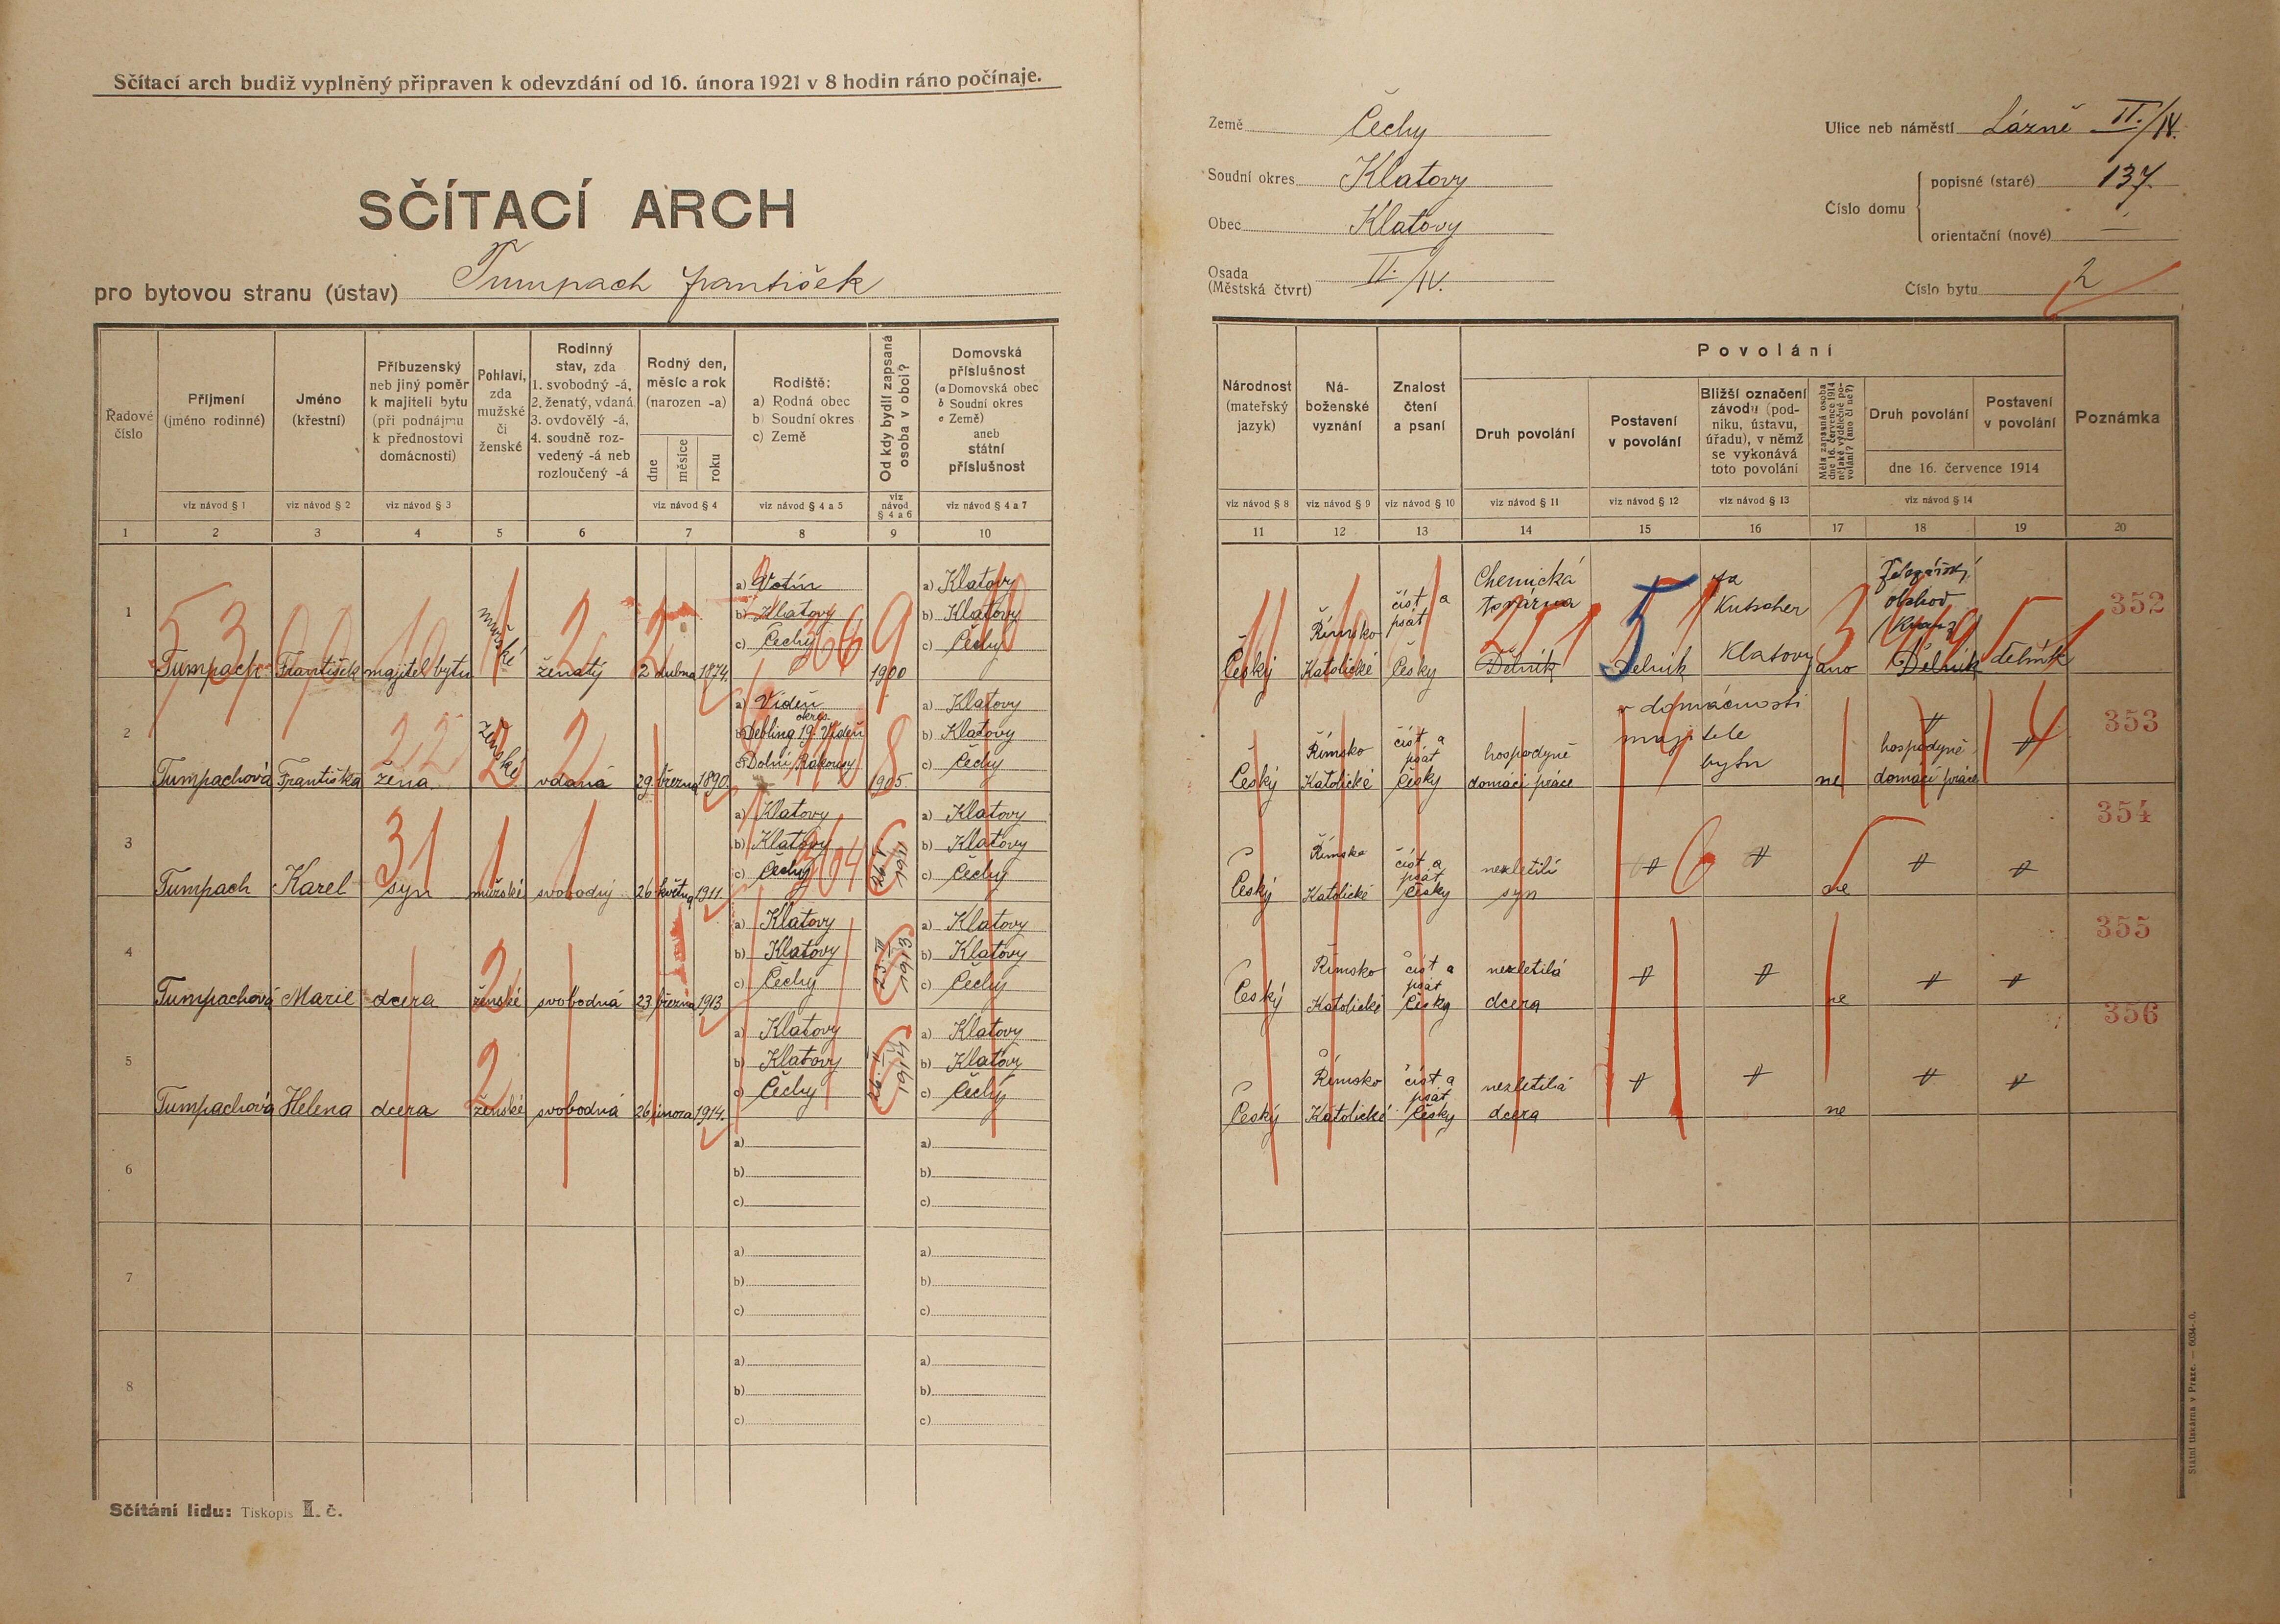 Sčítací arch budiž vyplněný připraven k odevzdání od 16. února 1921 v 8 hodin ráno počínaje.
SČÍTACÍ ARCH
pro bytovou stranu (ústav) Tumpach František
Země Čechy
Soudní okres Klatovy
Obec Klatovy
Osada (Městská čtvrt) II./IV.
Ulice neb náměstí Lázně II./IV.
Číslo domu
popisné (staré) 137.
orientační (nové) —
Číslo bytu 2
Řadové číslo
Příjmení (jméno rodinné)
Jméno (křestní)
Příbuzenský neb jiný poměr k majiteli bytu (při podnájmu k přednostovi domácnosti)
Pohlaví, zda mužské či ženské
Rodinný stav, zda 1. svobodný -á, 2. ženatý, vdaná 3. ovdovělý -á, 4. soudně rozvedený -á neb rozloučený -á
Rodný den, měsíc a rok (narozen -a)
dne měsíce roku
Rodiště: a) Rodná obec b) Soudní okres c) Země
Od kdy bydlí zapsaná osoba v obci?
Domovská příslušnost (a Domovská obec b Soudní okres c Země) aneb státní příslušnost
viz návod § 1 viz návod § 2 viz návod § 3 viz návod § 4 viz návod § 4 a 5 viz návod § 4 a 6 viz návod § 4 a 7
1 2 3 4 5 6 7 8 9 10
Národnost (mateřský jazyk)
Náboženské vyznání
Znalost čtení a psaní
Povolání
Druh povolání
Postavení v povolání
Bližší označení závodu (podniku, ústavu, úřadu), v němž se vykonává toto povolání
Měla zapsaná osoba dne 16. července 1914 nějaké výdělečné povolání? (ano či ne?)
Druh povolání
Postavení v povolání
dne 16. července 1914
Poznámka
viz návod § 8 viz návod § 9 viz návod § 10 viz návod § 11 viz návod § 12 viz návod § 13 viz návod § 14
11 12 13 14 15 16 17 18 19 20
1 Tumpach František majitel bytu mužské ženatý 2 dubna 1874. a) Votín b) Klatovy c) Čechy 1900 a) Klatovy b) Klatovy c) Čechy
Český Římsko Katolické číst a psát Česky Chemická továrna Dělník Dělník fa Kutscher Klatovy ano obchod Dělník dělník 352
2 Tumpachová Františka žena ženské vdaná 29 března 1890. a) Vídeň b) Debling okres 19. Vídeň c) Dolní Rakousy 1905. a) Klatovy b) Klatovy c) Čechy
Český Římsko Katolické číst a psát Česky hospodyně domácí práce v domácnosti majitele bytu ne hospodyně domácí práce 353
3 Tumpach Karel syn mužské svobodný 26 května 1911. a) Klatovy b) Klatovy c) Čechy 26. V. 1911 a) Klatovy b) Klatovy c) Čechy
Český Římsko Katolické číst a psát Česky nezletilí syn ne 354
4 Tumpachová Marie dcera ženské svobodná 23 března 1913 a) Klatovy b) Klatovy c) Čechy 23. III 1913 a) Klatovy b) Klatovy c) Čechy
Český Římsko Katolické číst a psát Česky nezletilá dcera ne 355
5 Tumpachová Helena dcera ženské svobodná 26 února 1914. a) Klatovy b) Klatovy c) Čechy 26. II 1914 a) Klatovy b) Klatovy c) Čechy
Český Římsko Katolické číst a psát Česky nezletilá dcera ne 356
6 a) b) c) a) b) c)
7 a) b) c) a) b) c)
8 a) b) c) a) b) c)
Sčítání lidu: Tiskopis II. č.
Státní tiskárna v Praze. — 6034-.0.